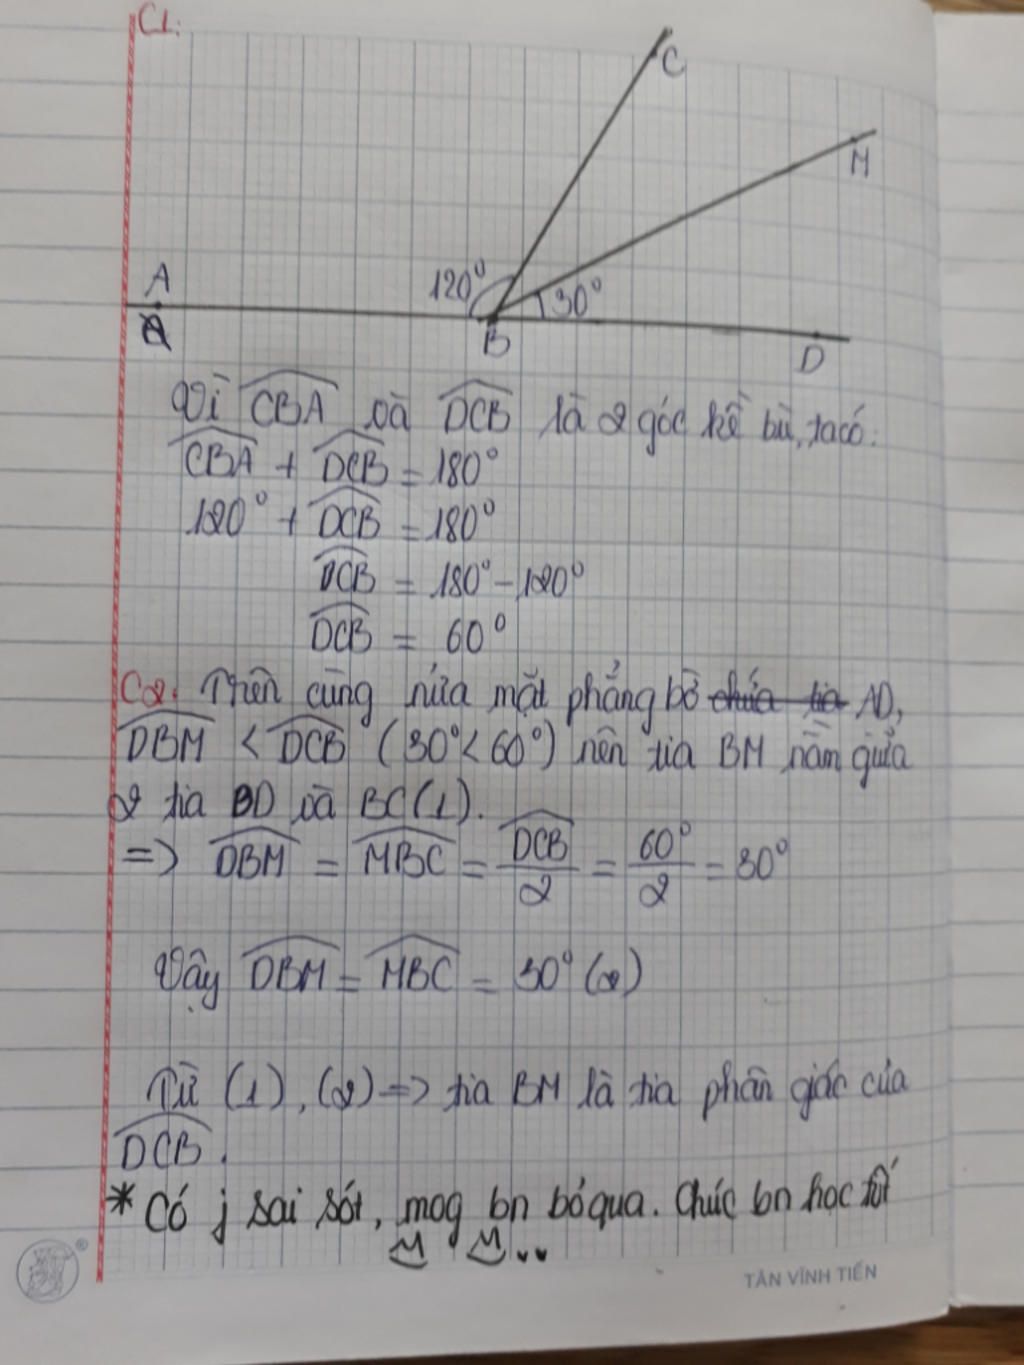 C1:
C
M
A
120°
30°
B
D
Vì CBA và DCB là 2 góc kề bù, ta có:
CBA + DCB = 180°
120° + DCB = 180°
DCB = 180° - 120°
DCB = 60°
C2. Trên cùng nửa mặt phẳng bờ chứa tia AD,
DBM < DCB (30° < 60°) nên tia BM nằm giữa
2 tia BD và BC (1).
=> DBM = MBC = DCB/2 = 60°/2 = 30°
Vậy DBM = MBC = 30° (2)
Từ (1), (2) => tia BM là tia phân giác của
DCB.
* Có j sai sót, mog bn bỏ qua. Chúc bn học tốt
TÂN VĨNH TIẾN